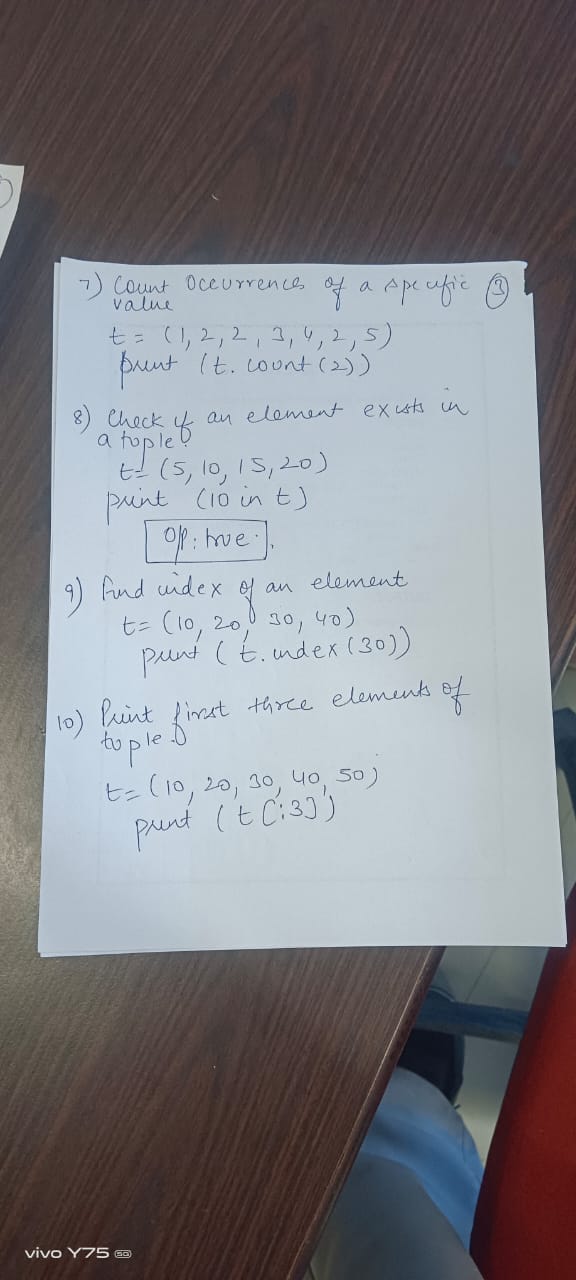 3
7) Count Occurrences of a specific
value
t = (1, 2, 2, 3, 4, 2, 5)
print (t. count (2))
8) Check if an element exists in
a tuple
t = (5, 10, 15, 20)
print (10 in t)
O/P: true.
9) Find index of an element
t= (10, 20, 30, 40)
print ( t. index (30))
10) Print first three elements of
tuple
t= (10, 20, 30, 40, 50)
print ( t [:3])
vivo Y75 5G